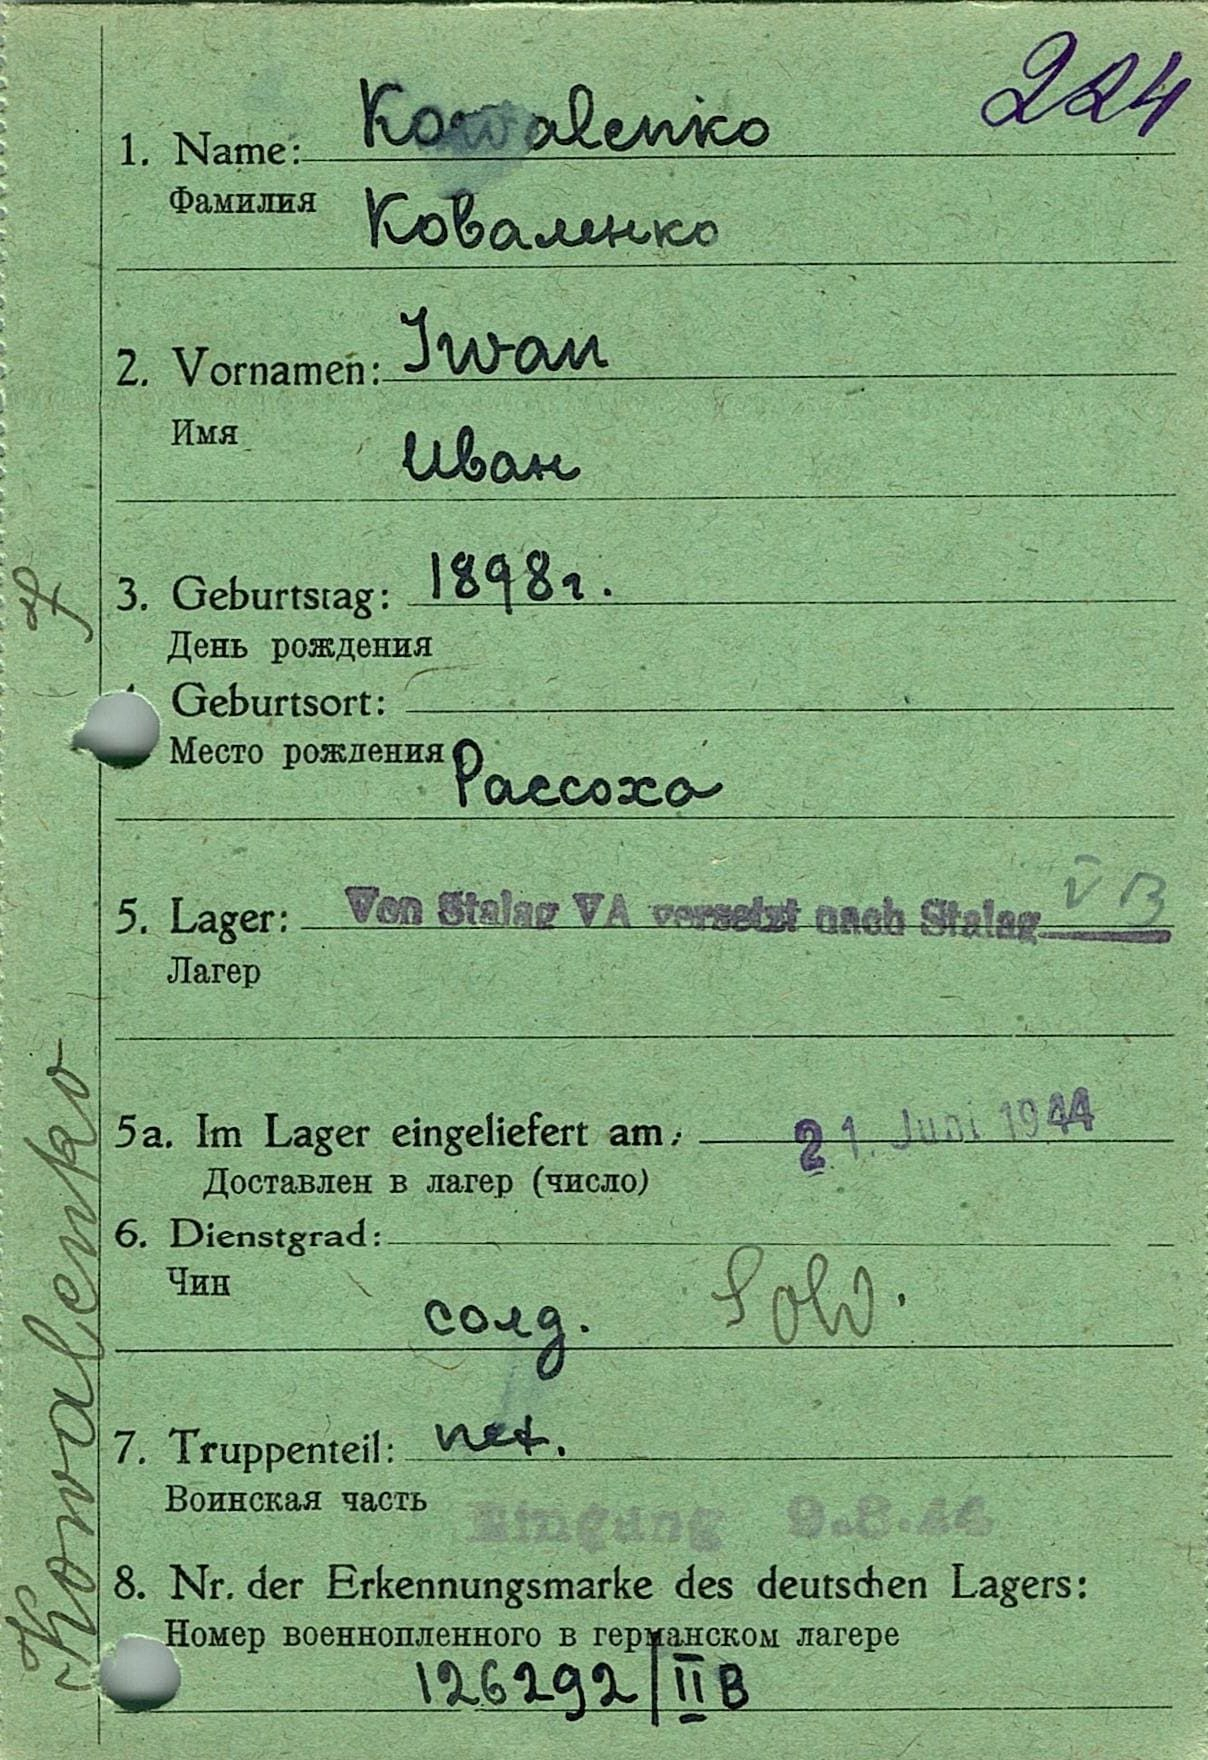 224
1. Name: Kowalenko
Фамилия Коваленко
2. Vornamen: Iwan
Имя Иван
3. Geburtstag: 1898г.
День рождения
Geburtsort:
Место рождения Рассоха
5. Lager: Von Stalag VA versetzt nach Stalag V B
Лагер
5a. Im Lager eingeliefert am: 21. Juni 1944
Доставлен в лагер (число)
6. Dienstgrad:
Чин
солд. Sold.
7. Truppenteil: нет.
Воинская часть
Eingang 9.8.44
8. Nr. der Erkennungsmarke des deutschen Lagers:
Номер военнопленного в германском лагере
126292/II B
Kowalenko